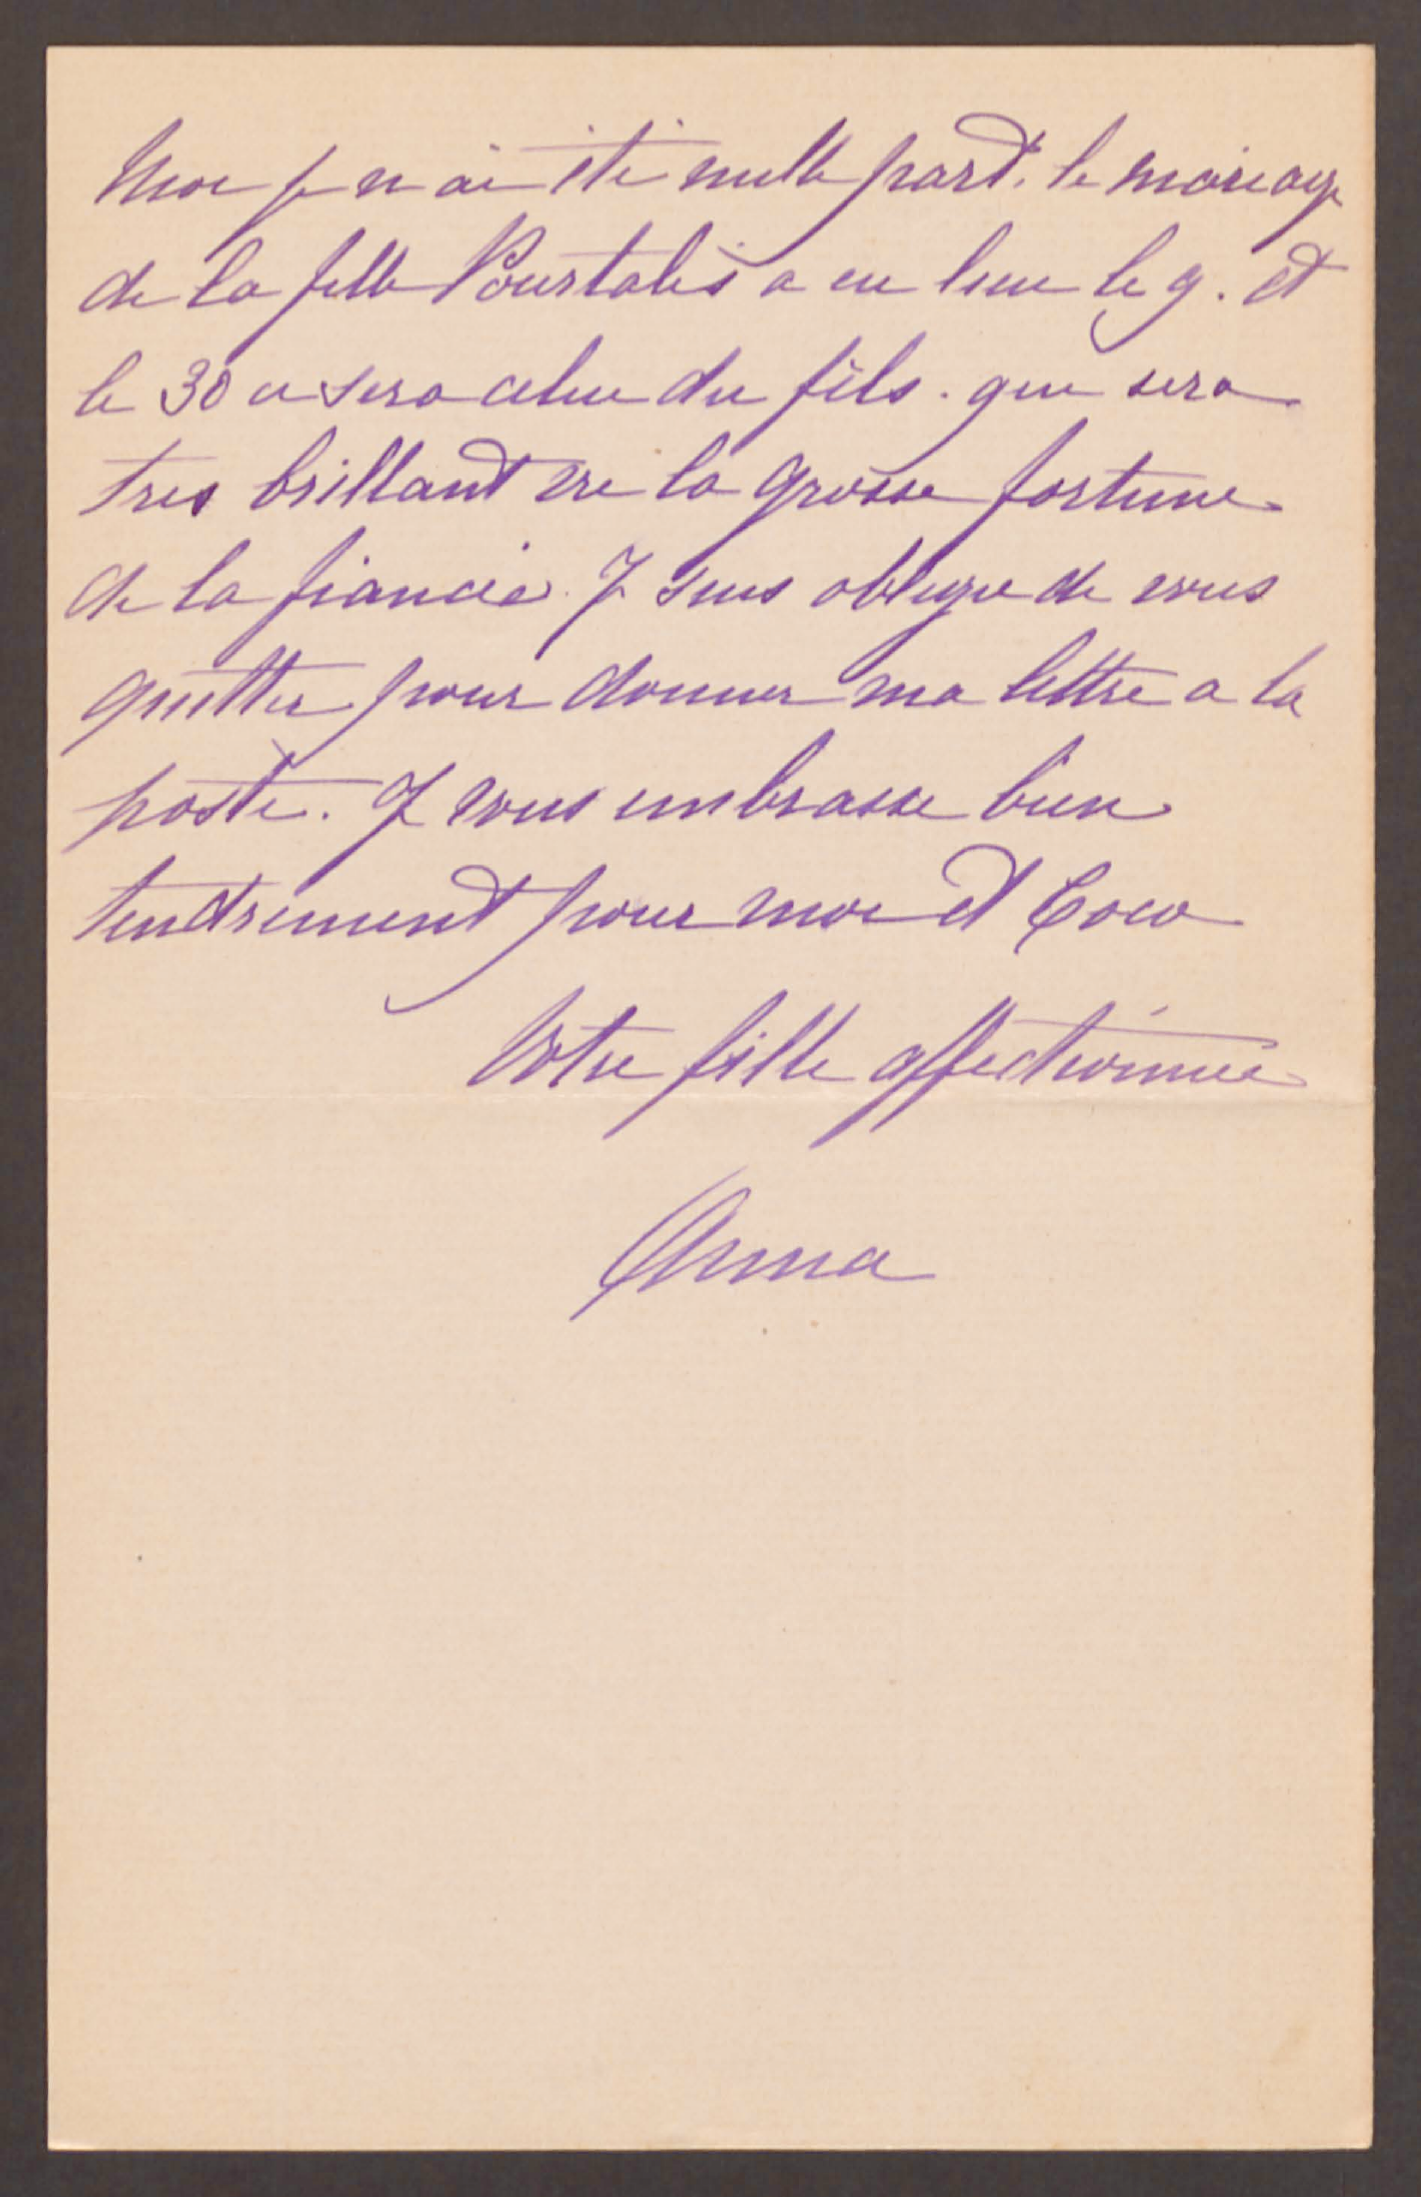 Moi je n'ai été nulle part. le mariage
de la fille Pourtalès a eu lieu le 9. et
le 30 ce sera celui du fils. qui sera
très brillant vu la grosse fortune
de la fiancée. Je suis obligée de vous
quitter pour donner ma lettre a la
poste. Je vous embrasse bien
tendrement pour moi et Coco
Votre fille affectionnée
Anna